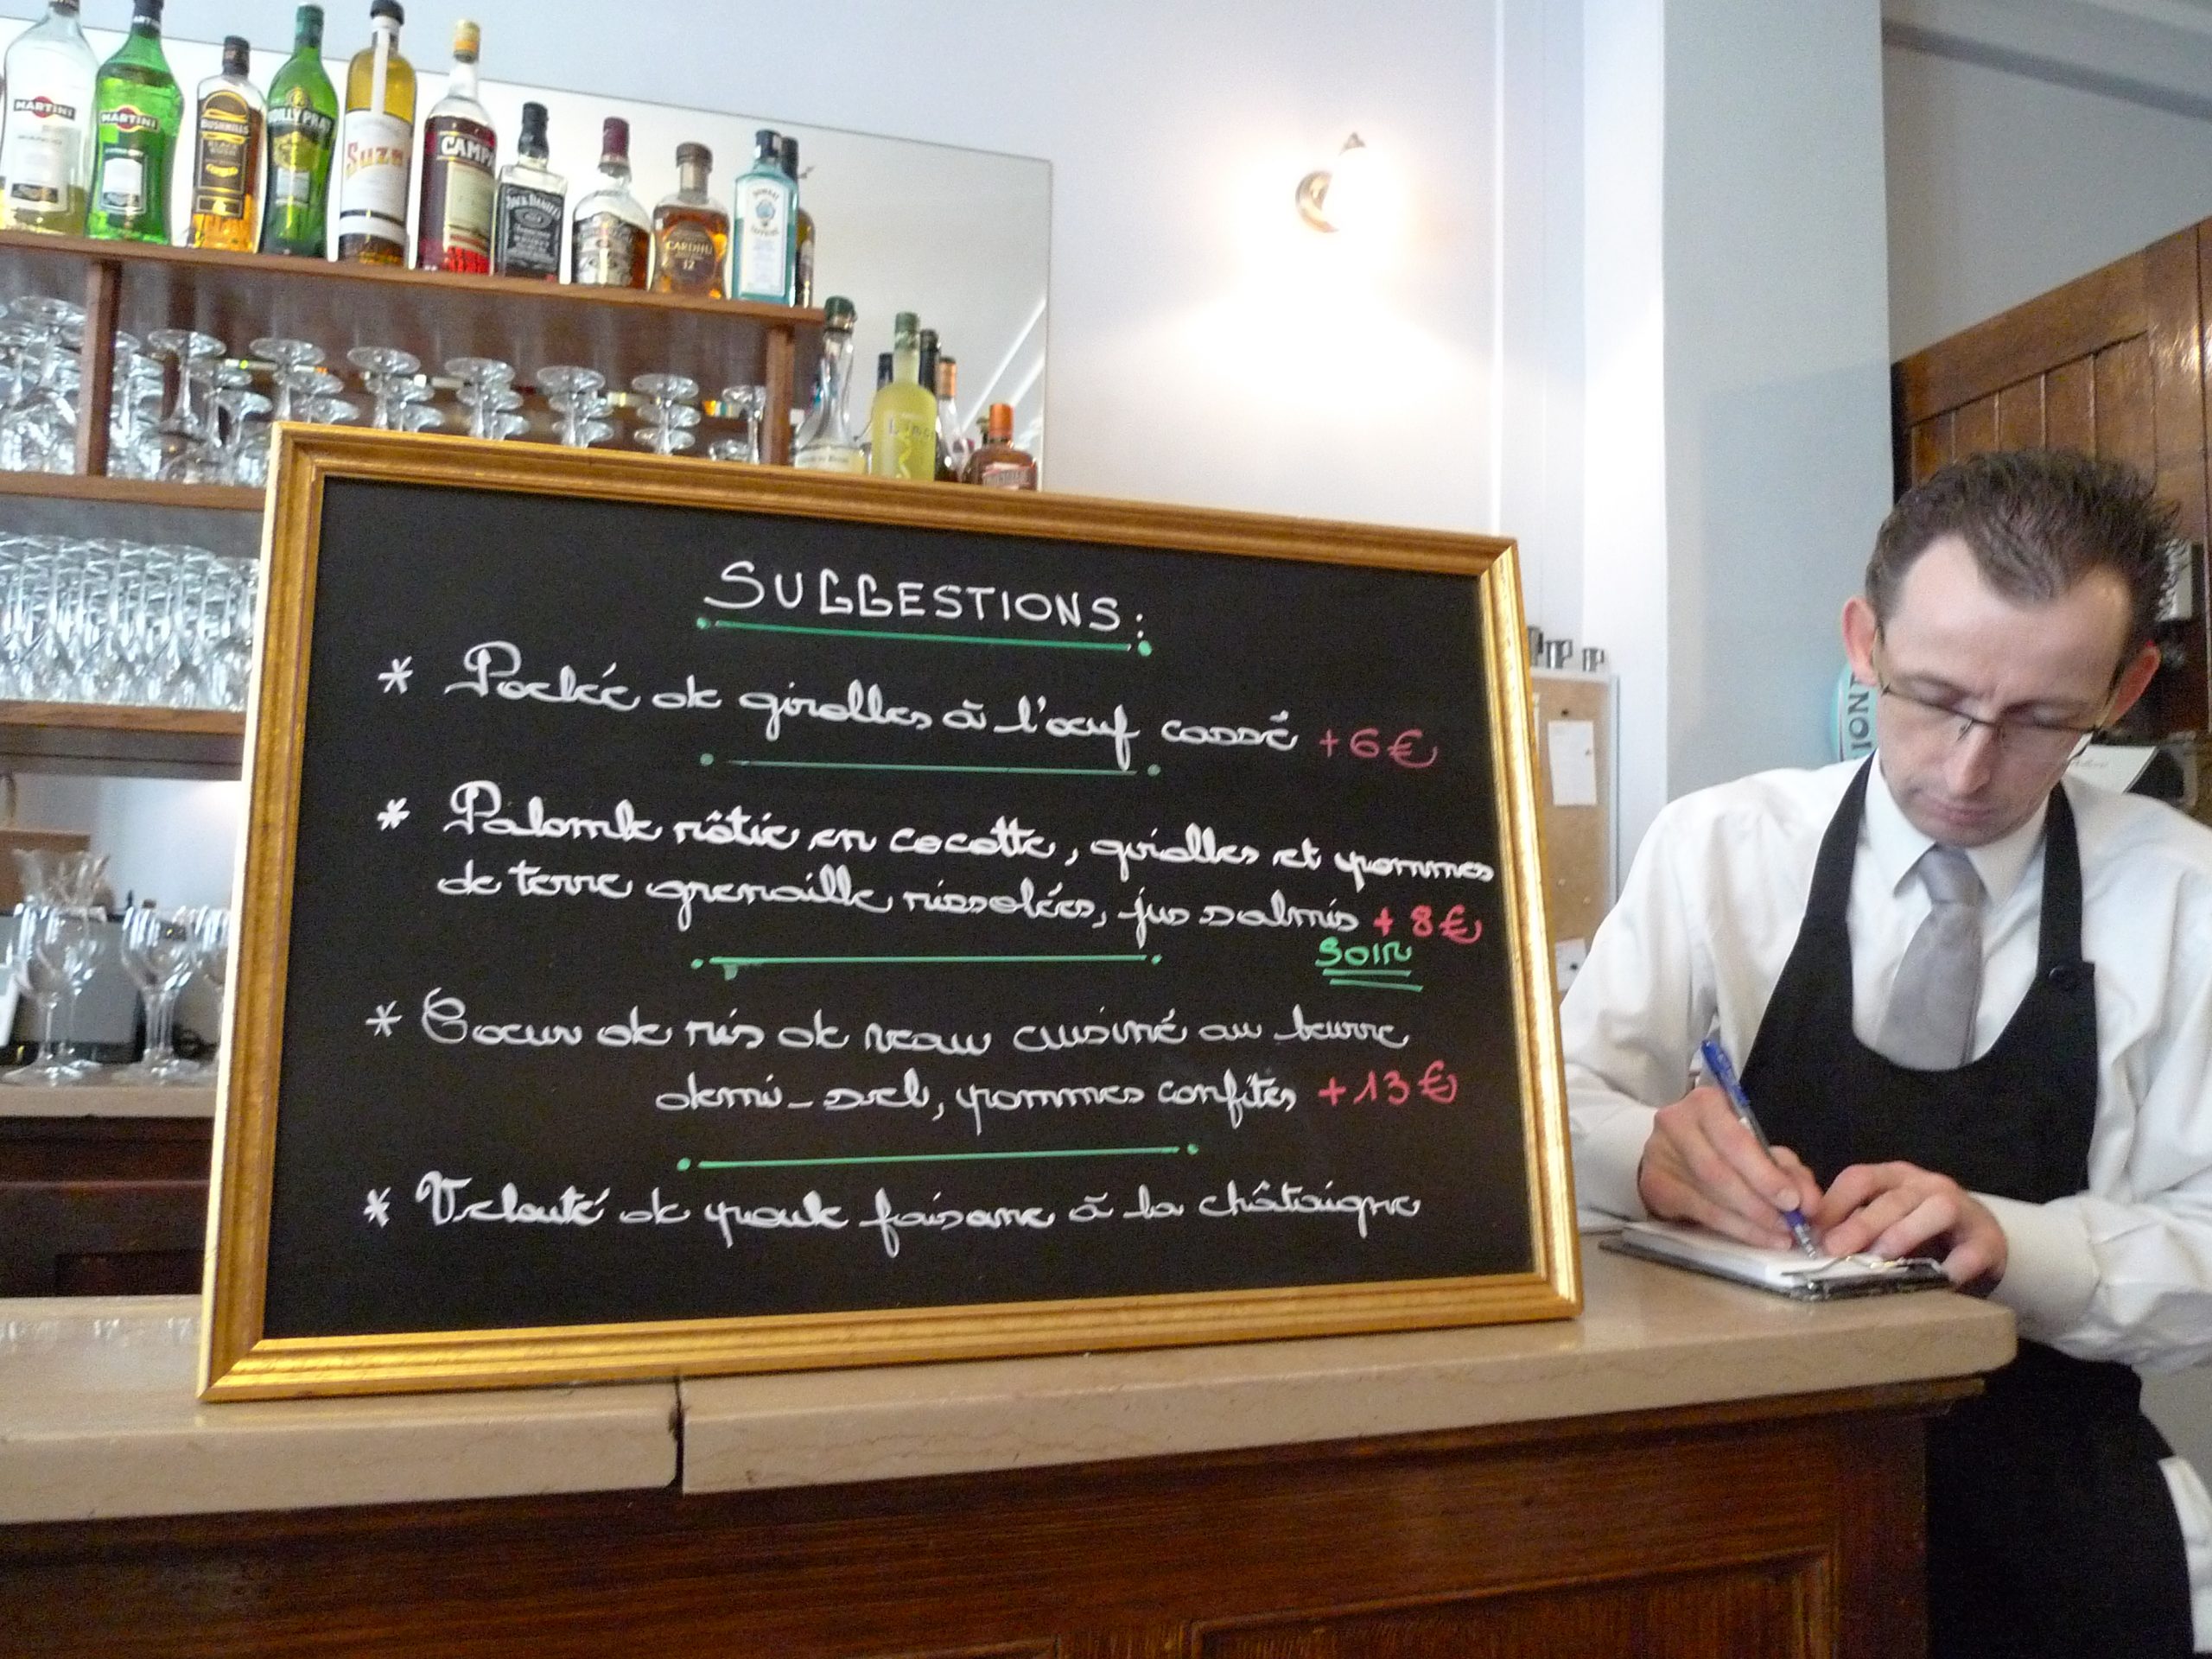 MARTINI
MARTINI
BUSHMILLS
BLACK BUSH
NOILLY PRAT
Suze
CAMPA
JACK DANIEL'S
CARDHU
12
BOMBAY
SAPPHIRE
SUGGESTIONS:
* Poêlée de girolles à l'œuf cassé +6€
* Palombe rôtie en cocotte, girolles et pommes
de terre grenaille rissolées, jus salmis + 8€
SOIR
* Coeur de ris de veau cuisiné au beurre
demi-sel, pommes confites +13€
* Velouté de poule faisane à la châtaigne
ION